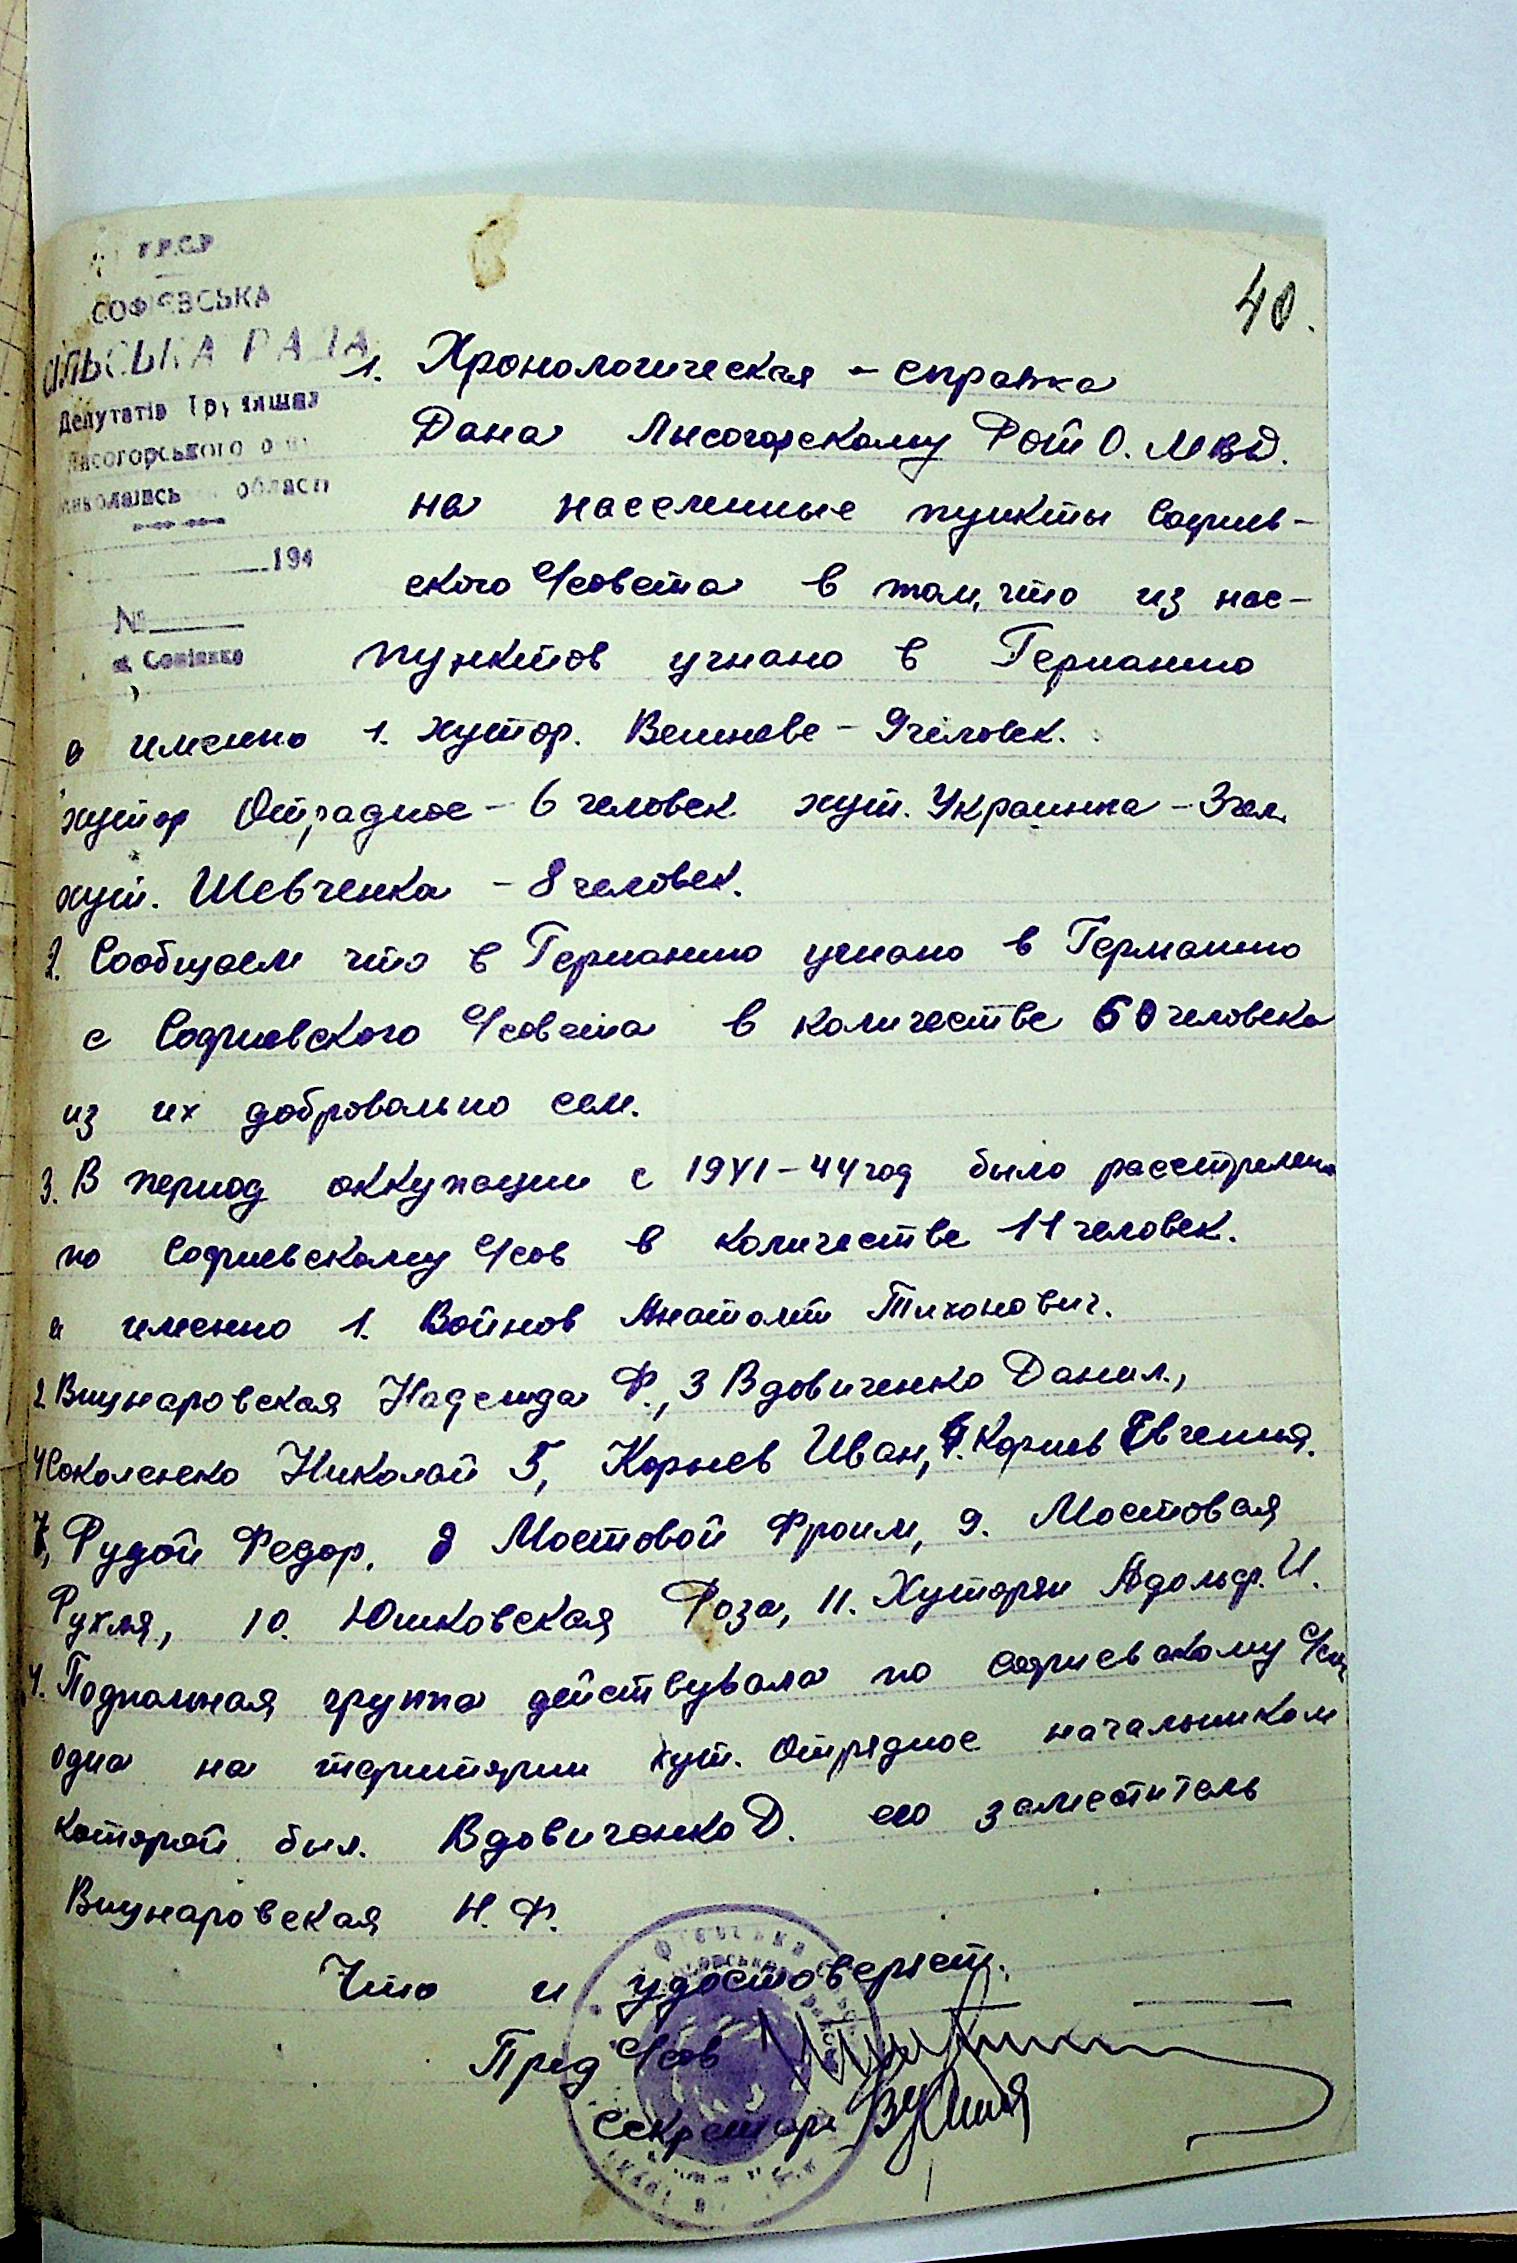 У.Р.С.Р
СОФІЄВСЬКА
СІЛЬСЬКА РАДА
Депутатів Трудящих
Лисогорського
Миколаївсь області
194
№
40.
1. Хронологическая - справка
Дана Лысогорскому Рот О. МВД.
на населенные пункты Софиев-
ского с/совета в том, что из нас-
пунктов угнано в Германию
а именно 1. хутор. Вешневе - 9 человек.
хутор Отрадное - 6 человек хут. Украинка - 3 чел.
хут. Шевченка - 8 человек.
2. Сообщаем что в Германию угнано в Германию
с Софиевского с/совета в количестве 60 человека
из их добровольно сем.
3. В период оккупации с 1941-44 год было расстрелено
по Софиевскому с/сов в количестве 11 человек.
а именно 1. Войнов Анатолий Тихонович.
2 Вишнаровская Надежда Ф., 3 Вдовиченко Данил.,
4 Соколенко Николай 5, Корнев Иван, 6. Корнев Евгения.
7, Рудой Федор. 8 Мостовой Фроим, 9. Мостовая
Рухля, 10. Юшковская Роза, 11. Хуторян Адольф. И.
4. Подпольная группа действувала по софиевскому
одна на територии хут. Отрядное начальником
которой был. Вдовиченко Д. его заместитель
Вишнаровская Н. Ф.
Что и удостоверяет.
Пред с/сов
секретарь